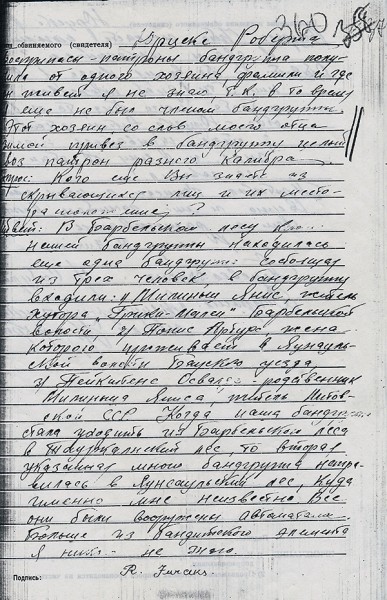 обвиняемого (свидетеля) Роберта
360
боеприпасы-патроны бандгруппа полу-
чила от одного хозяина фамили и где
он живет я не знаю т.к. в то время
я еще не был членом бандгруппы.
Этот хозяин со слов моего отца
зимой привез в бандгруппу целый
воз патрон разного калибра.
Вопрос: Кого еще Вы знаете из
скрывающихся лиц и их место-
расположение?
Ответ: В Барбельском лесу кроме
нашей бандгруппы находилась
еще одна бандгруппа
из трех человек, в бандгруппу
входили: 1) Янис, житель
хутора Барбельской
волости 2) Артур жена
которого проживает в
ской волости Бауского уезда
3) родственник
житель Литов-
ской ССР. Когда наша бандгруппа
стала уходить из Барбельского леса
в лес, то вторая
указанная мною бандгруппа напра-
вилась в лес, куда
именно мне неизвестно. Все
они были вооружены автоматами
Больше из бандитского элемента
я никого не знаю.
Подпись: R.